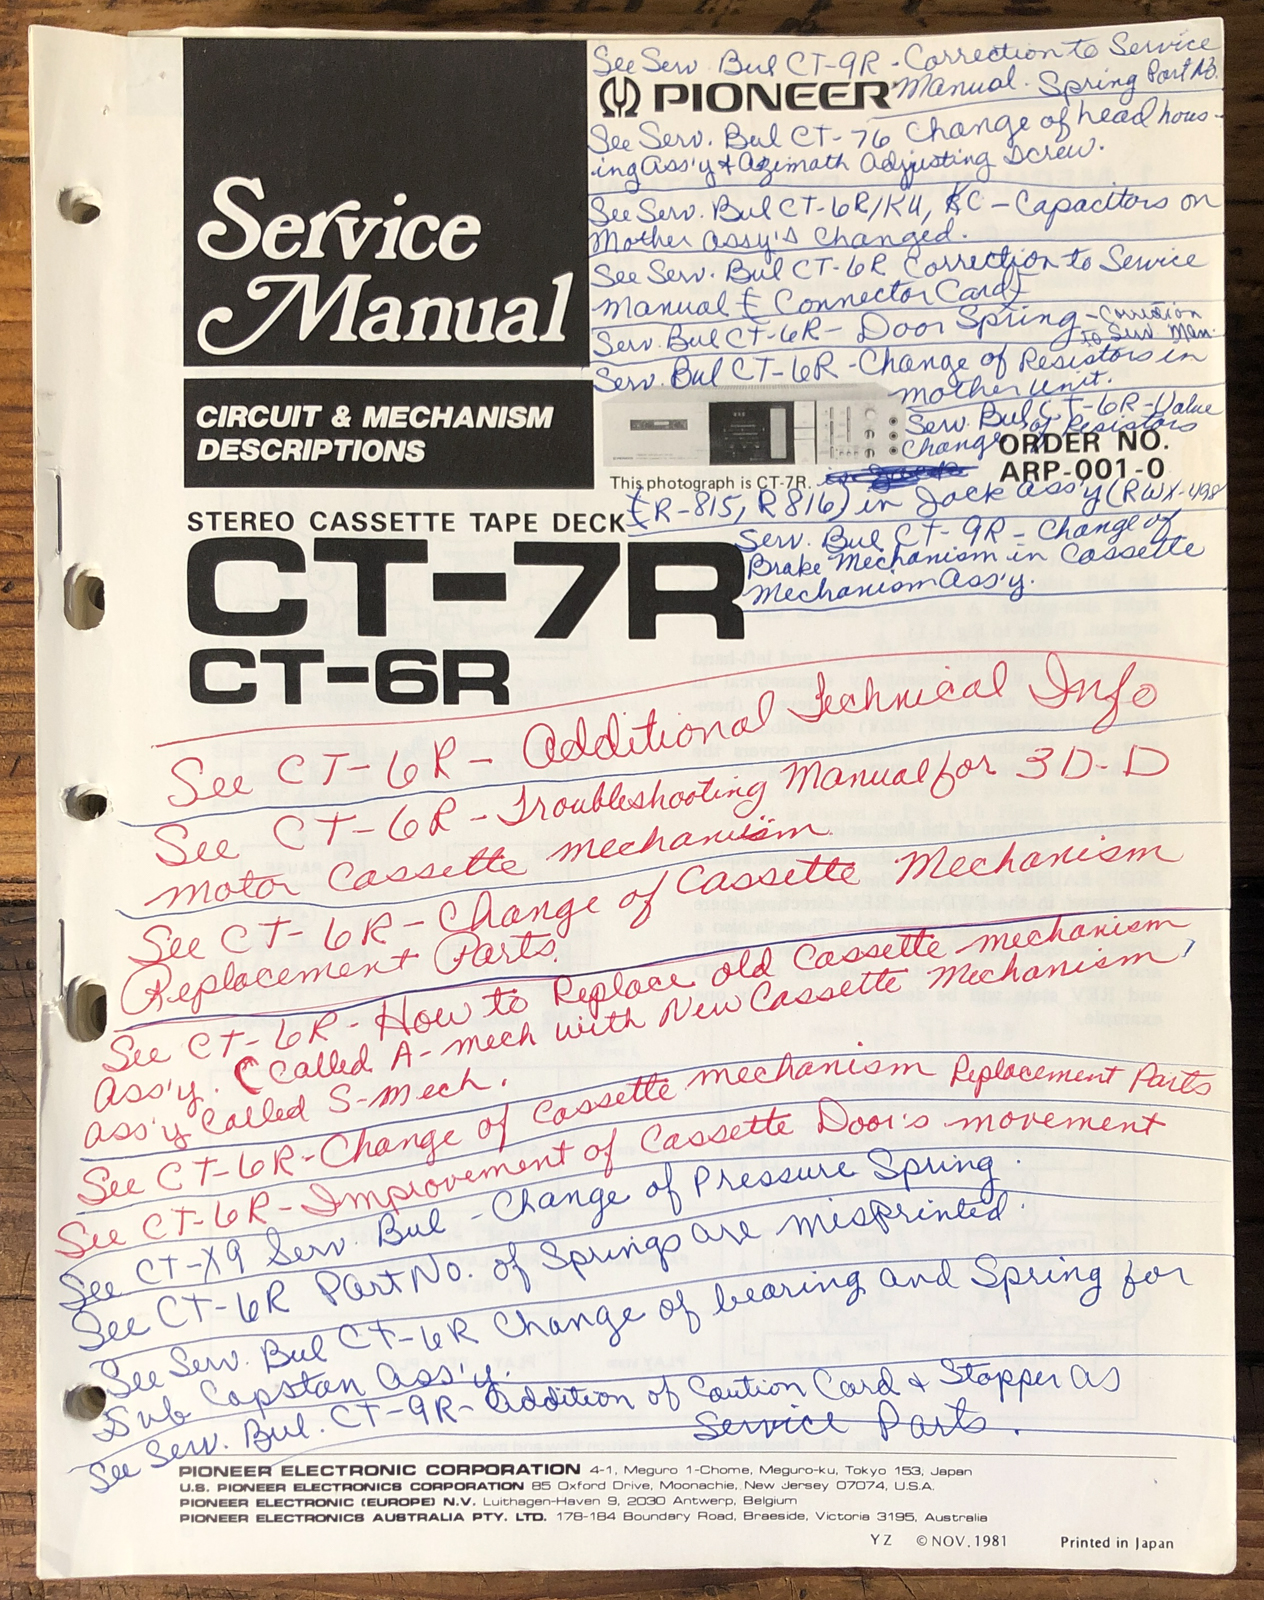 See Serv. Bul CT-9R - Correction to Service
Manual. Spring Part No.
PIONEER
See Serv. Bul CT-76 Change of head hous-
ing Ass'y & Azimath Adjusting Screw.
See Serv. Bul CT-6R/KU, KC - Capacitors on
Mother Assy's Changed.
See Serv. Bul CT-6R Correction to Service
Manual (Connector Card)
Serv. Bul CT-6R - Door Spring - Correction
to Serv. Man.
Serv. Bul CT-6R - Change of Resistors in
mother unit.
Serv. Bul CT-6R - Value
Change of Resistors
(R-815, R816) in Jack Ass'y (RWX-498
Serv. Bul CT-9R - Change of
Brake Mechanism in Cassette
Mechanism Ass'y.
Service
Manual
CIRCUIT & MECHANISM
DESCRIPTIONS
This photograph is CT-7R.
ORDER NO.
ARP-001-0
STEREO CASSETTE TAPE DECK
CT-7R
CT-6R
See CT-6R - Additional Technical Info
See CT-6R - Troubleshooting Manual for 3D-D
motor Cassette mechanism
See CT-6R - Change of Cassette Mechanism
Replacement Parts.
See CT-6R - How to Replace old Cassette mechanism
Ass'y. (called A-mech with New Cassette Mechanism
Ass'y called S-Mech.
See CT-6R - Change of Cassette mechanism Replacement Parts
See CT-6R - Improvement of Cassette Door's movement
See CT-X9 Serv. Bul - Change of Pressure Spring.
See CT-6R Part No. of Springs are misprinted.
See Serv. Bul CT-6R Change of bearing and Spring for
Sub Capstan Ass'y.
See Serv. Bul. CT-9R - Addition of Caution Card & Stopper as
Service Parts.
PIONEER ELECTRONIC CORPORATION 4-1, Meguro 1-Chome, Meguro-ku, Tokyo 153, Japan
U.S. PIONEER ELECTRONICS CORPORATION 85 Oxford Drive, Moonachie, New Jersey 07074, U.S.A.
PIONEER ELECTRONIC (EUROPE) N.V. Luithagen-Haven 9, 2030 Antwerp, Belgium
PIONEER ELECTRONICS AUSTRALIA PTY. LTD. 178-184 Boundary Road, Braeside, Victoria 3195, Australia
YZ © NOV. 1981 Printed in Japan